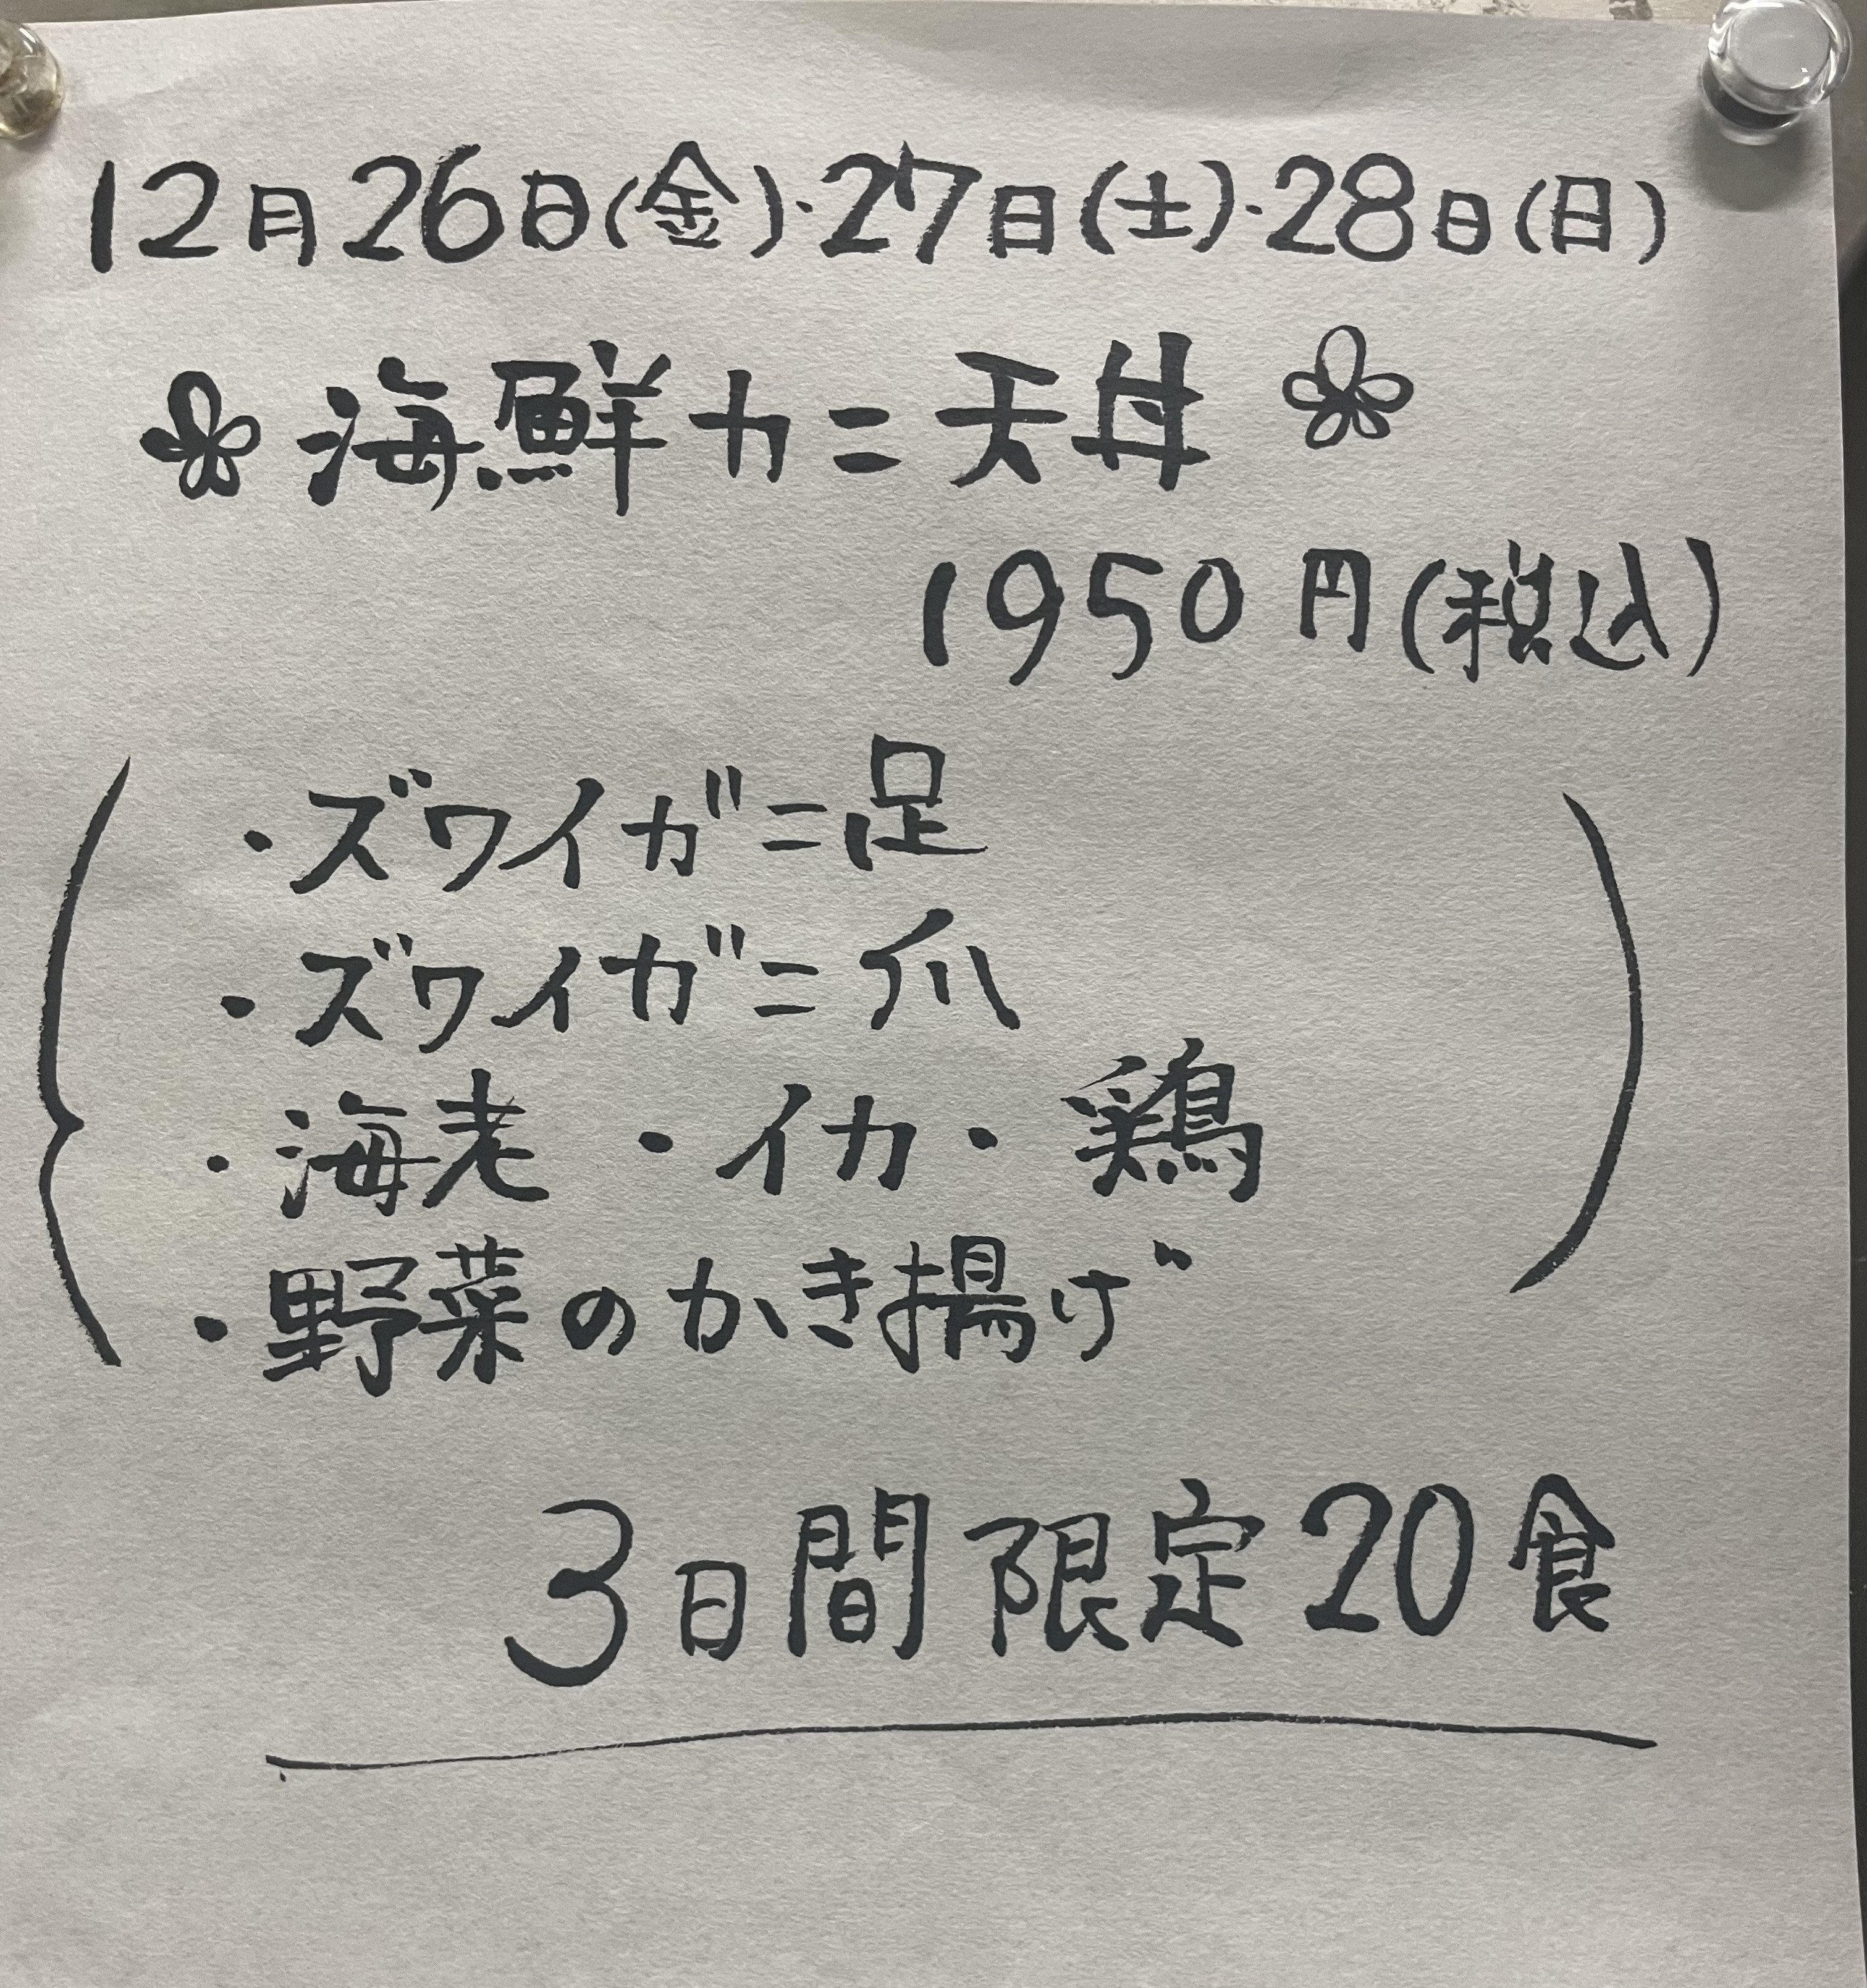 12月26日(金)・27日(土)・28日(日)
海鮮カニ天丼
1950円(税込)
・ズワイガニ足
・ズワイガニ爪
・海老・イカ・鶏
・野菜のかき揚げ
3日間限定20食